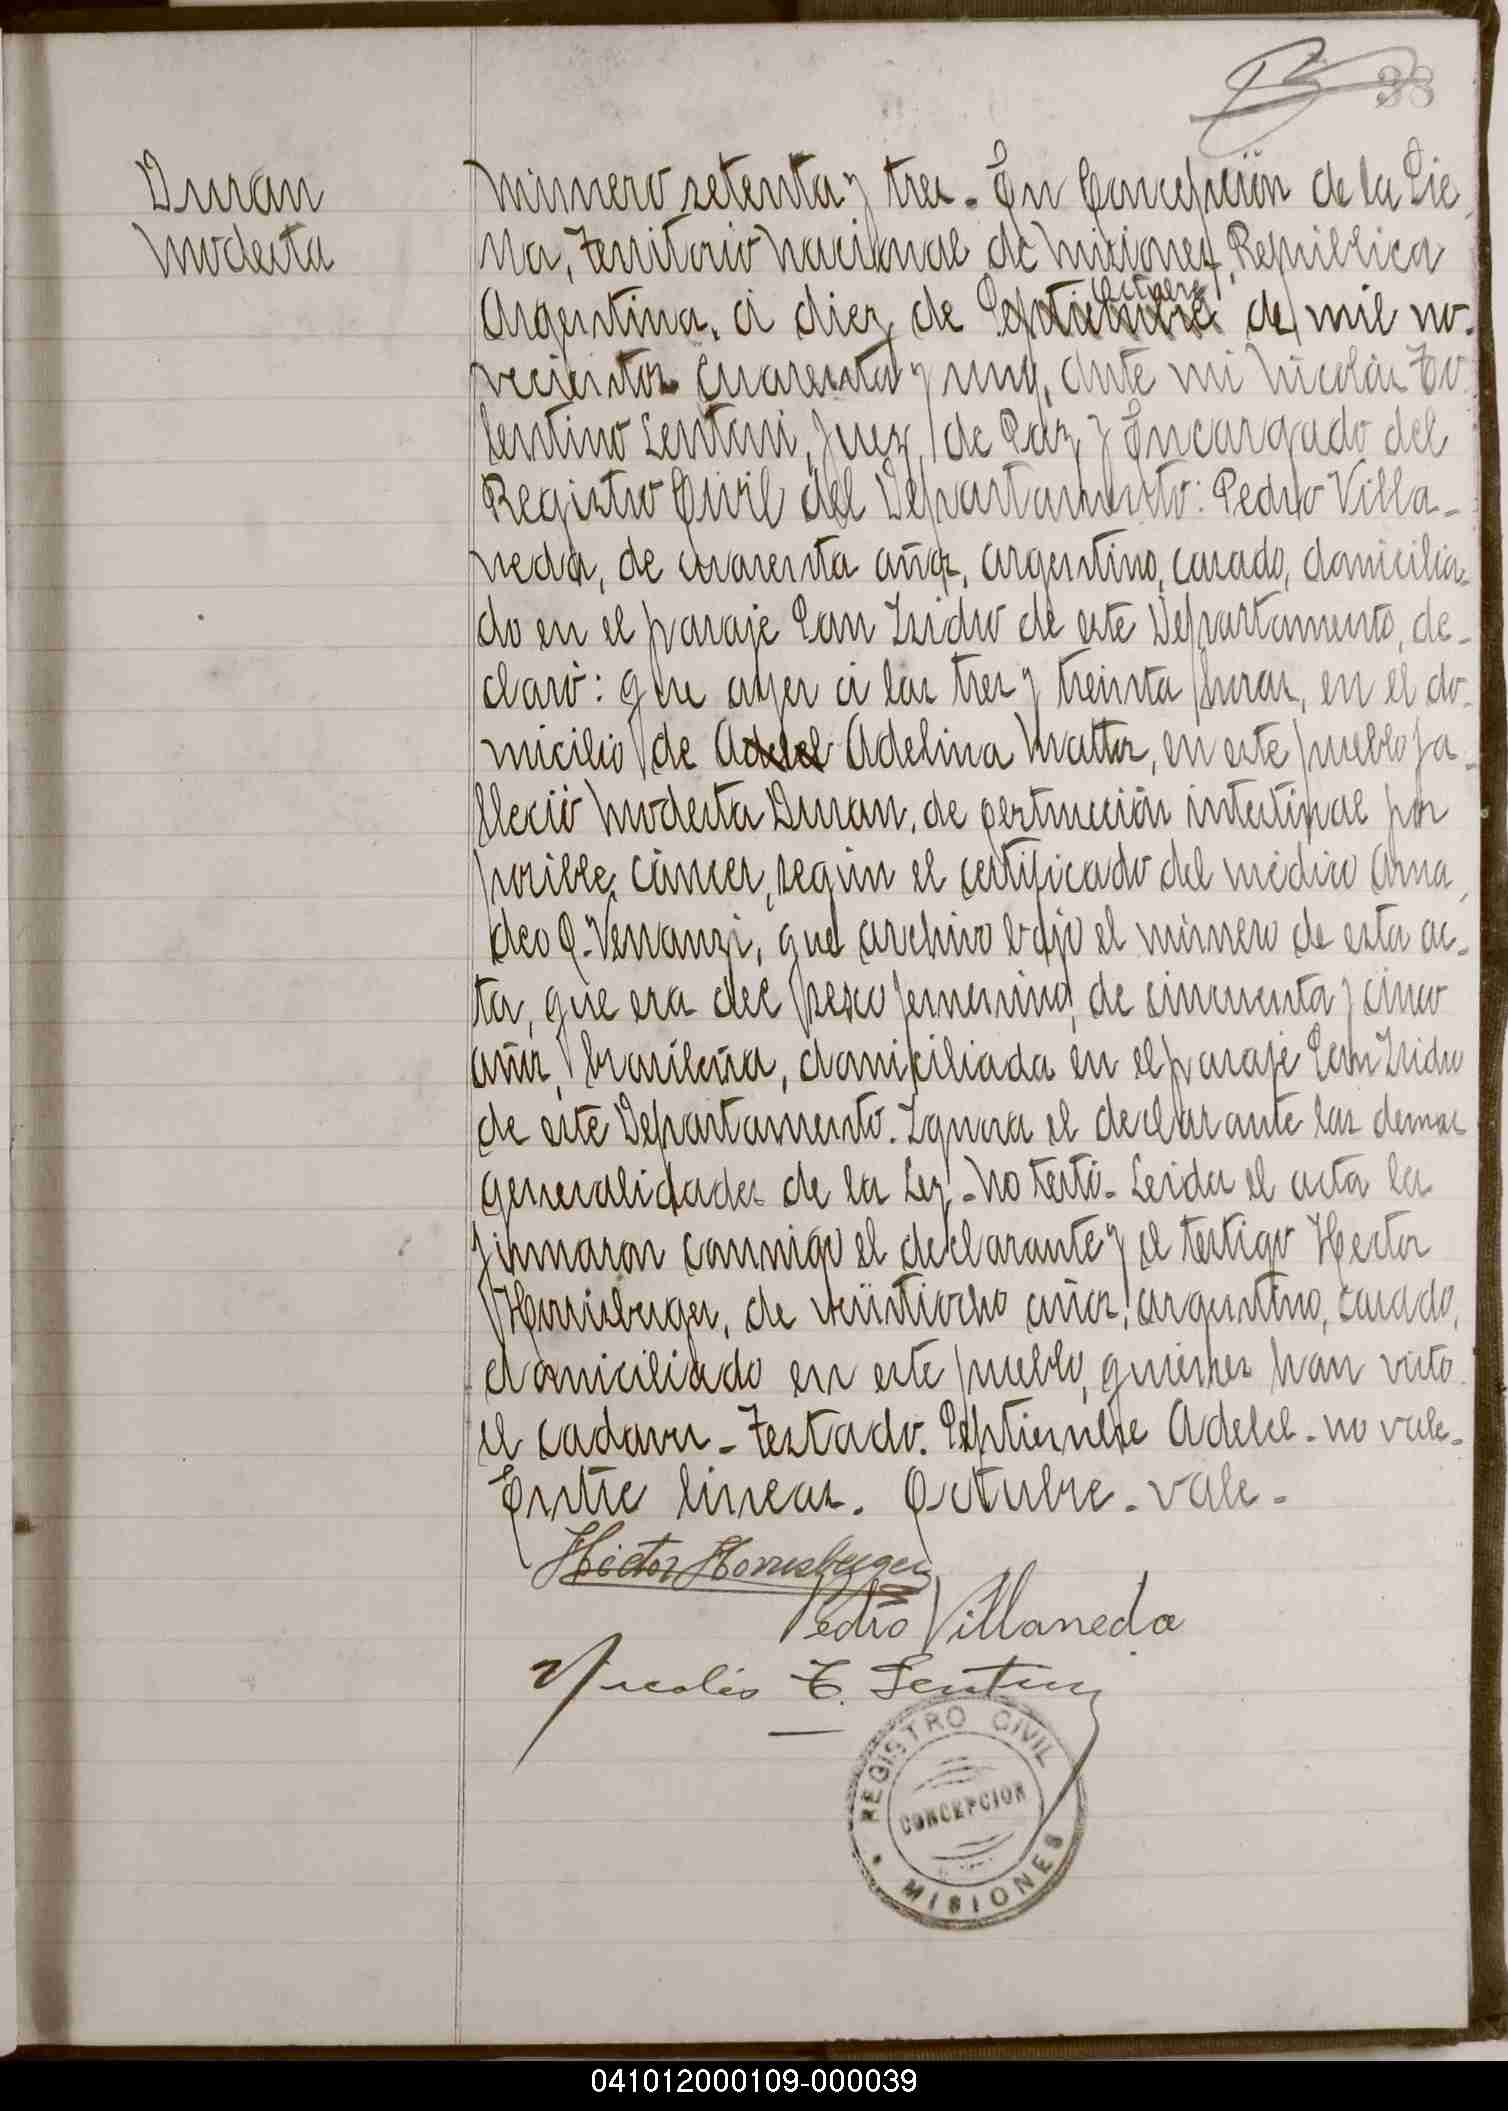 38
Duran
Modesta
Número setenta y tres. En Concepción de la Sie-
rra, Territorio Nacional de Misiones, República
Argentina, á diez de Septiembre Octubre de mil no-
vecientos cuarenta y uno, ante mi Nicolás To
lentino Lentini, Juez de Paz y Encargado del
Registro Civil del Departamento: Pedro Villa-
neda, de cuarenta años, argentino, casado, domicilia-
do en el paraje San Isidro de este Departamento, de-
claró: que ayer á las tres y treinta horas, en el do-
micilio de Adelel Adelina Mattos, en este pueblo fa-
lleció Modesta Duran, de obstrucción intestinal por
posible cáncer, según el certificado del médico Ama
deo Q. Venanzi, que archivo bajo el número de esta ac-
ta, que era del sexo femenino, de cincuenta y cinco
años, brasileña, domiciliada en el paraje San Isidro
de este Departamento. Ignora el declarante las demas
generalidades de la Ley - No testó - Leida el acta la
firmaron conmigo el declarante y el testigo Hector
Hornisberger, de veintiocho años, argentino, casado,
domiciliado en este pueblo, quienes han visto
el cadaver - Testado. Septiembre Adelel - no vale -
Entre lineas. Octubre - vale -
Héctor Hornisberger
Pedro Villaneda
Nicolás T. Lentini
REGISTRO CIVIL
CONCEPCION
MISIONES
041012000109-000039